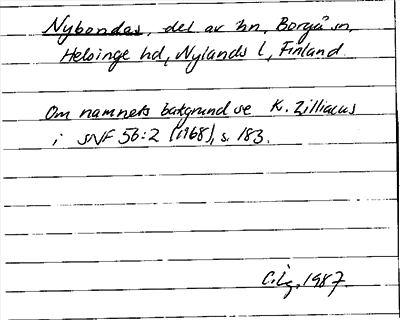 Nybondas, del av hn, Borgå sn,
Helsinge hd, Nylands l, Finland.
Om namnets bakgrund se K. Zilliacus
i SNF 56:2 (1968), s. 183.
C. Lg. 1987